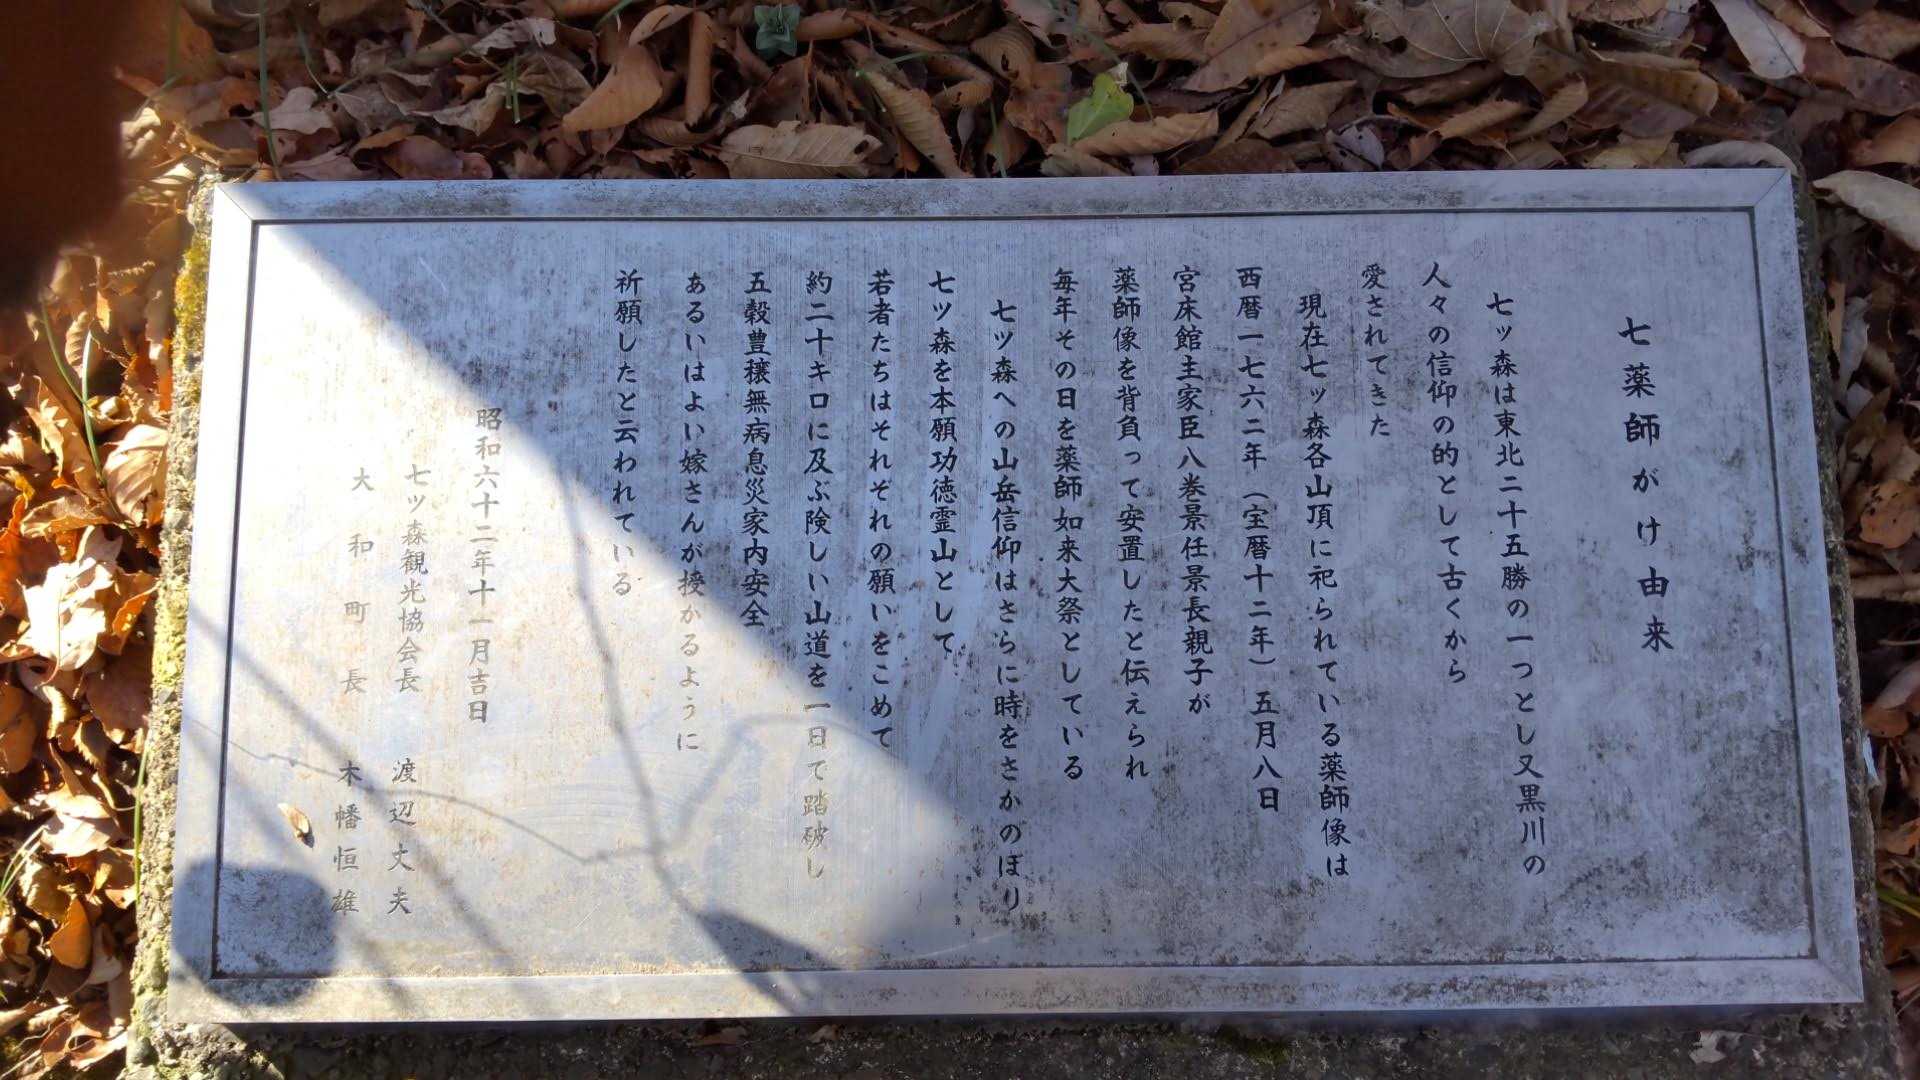 七薬師がけ由来
七ツ森は東北二十五勝の一つとし又黒川の
人々の信仰の的として古くから
愛されてきた
現在七ツ森各山頂に祀られている薬師像は
西暦一七六二年（宝暦十二年）五月八日
宮床館主家臣八巻景任景長親子が
薬師像を背負って安置したと伝えられ
毎年その日を薬師如来大祭としている
七ツ森への山岳信仰はさらに時をさかのぼり
七ツ森を本願功徳霊山として
若者たちはそれぞれの願いをこめて
約二十キロに及ぶ険しい山道を一日で踏破し
五穀豊穣無病息災家内安全
あるいはよい嫁さんが授かるように
祈願したと云われている
昭和六十二年十一月吉日
七ツ森観光協会長 渡辺丈夫
大和町長 木幡恒雄